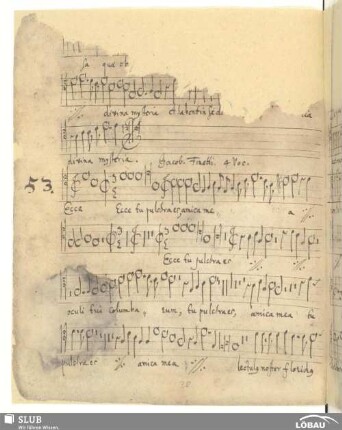 sa que ob
divina mysteria et latentia sede
divina mysteria. Jacob. 4 Voc.
53.
Ecce Ecce tu pulchra es amica mea
Ecce tu pulchra es
oculi tui columba, rum, tu pulchra es, amica mea tu
pulchra es amica mea lectulus noster floridus
SLUB
Wir führen Wissen.
LÖBAU